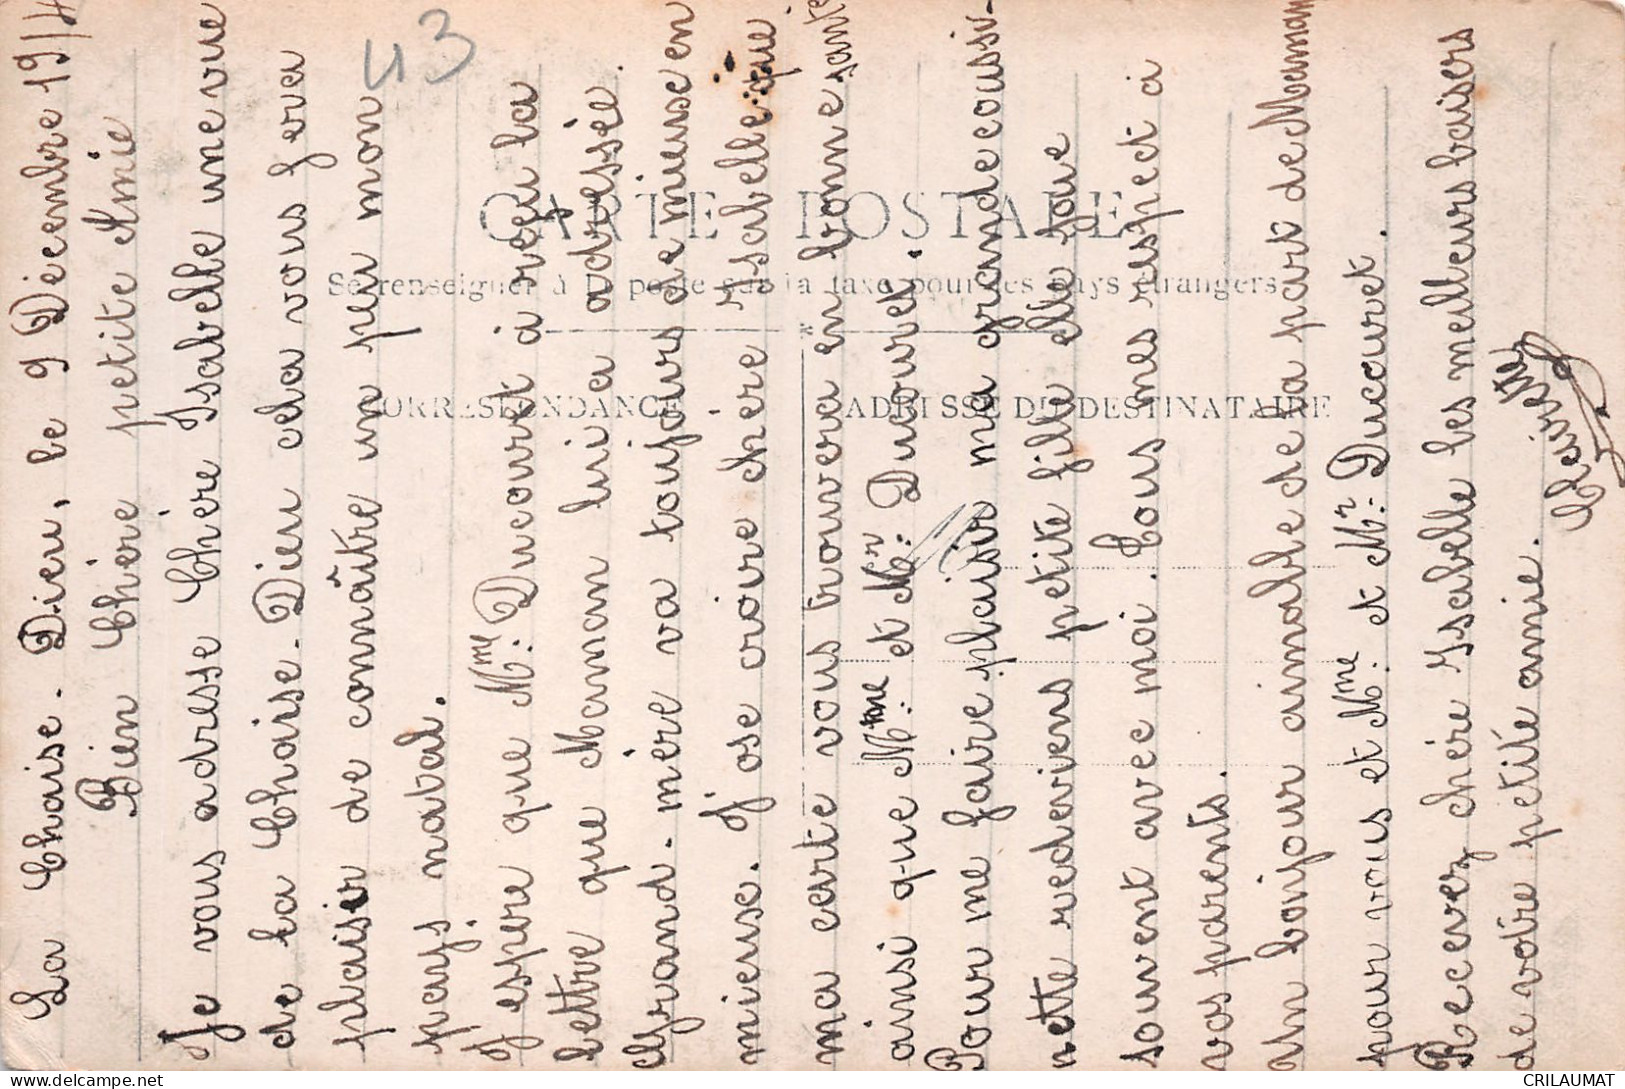 La Chaise-Dieu, le 9 Décembre 1914
Bien Chère petite Amie
Je vous adresse Chère Isabelle une vue
de la Chaise-Dieu cela vous fera
plaisir de connaître un peu mon
pays natal.
J'espère que Mme: Ducouret à reçu la
lettre que Maman lui a adressée.
Grand-mère va toujours de mieuse en
mieuse. J'ose croire chère Isabelle que
ma carte vous trouvera en bonne santé
ainsi que Mme: et Mr: Ducouret.
Pour me faire plaisir ma grande cousi-
nette redeviens petite fille elle joue
souvent avec moi. Tous mes respect à
vos parents.
Un bonjour aimable de la part de Maman
pour vous et Mme: et Mr: Ducouret.
Recevez chère Isabelle les meilleurs baisers
de votre petite amie.
43
CARTE POSTALE
Se renseigner à la poste sur la taxe pour les pays étrangers
CORRESPONDANCE
ADRESSE DU DESTINATAIRE
delcampe.net
CRILAUMAT